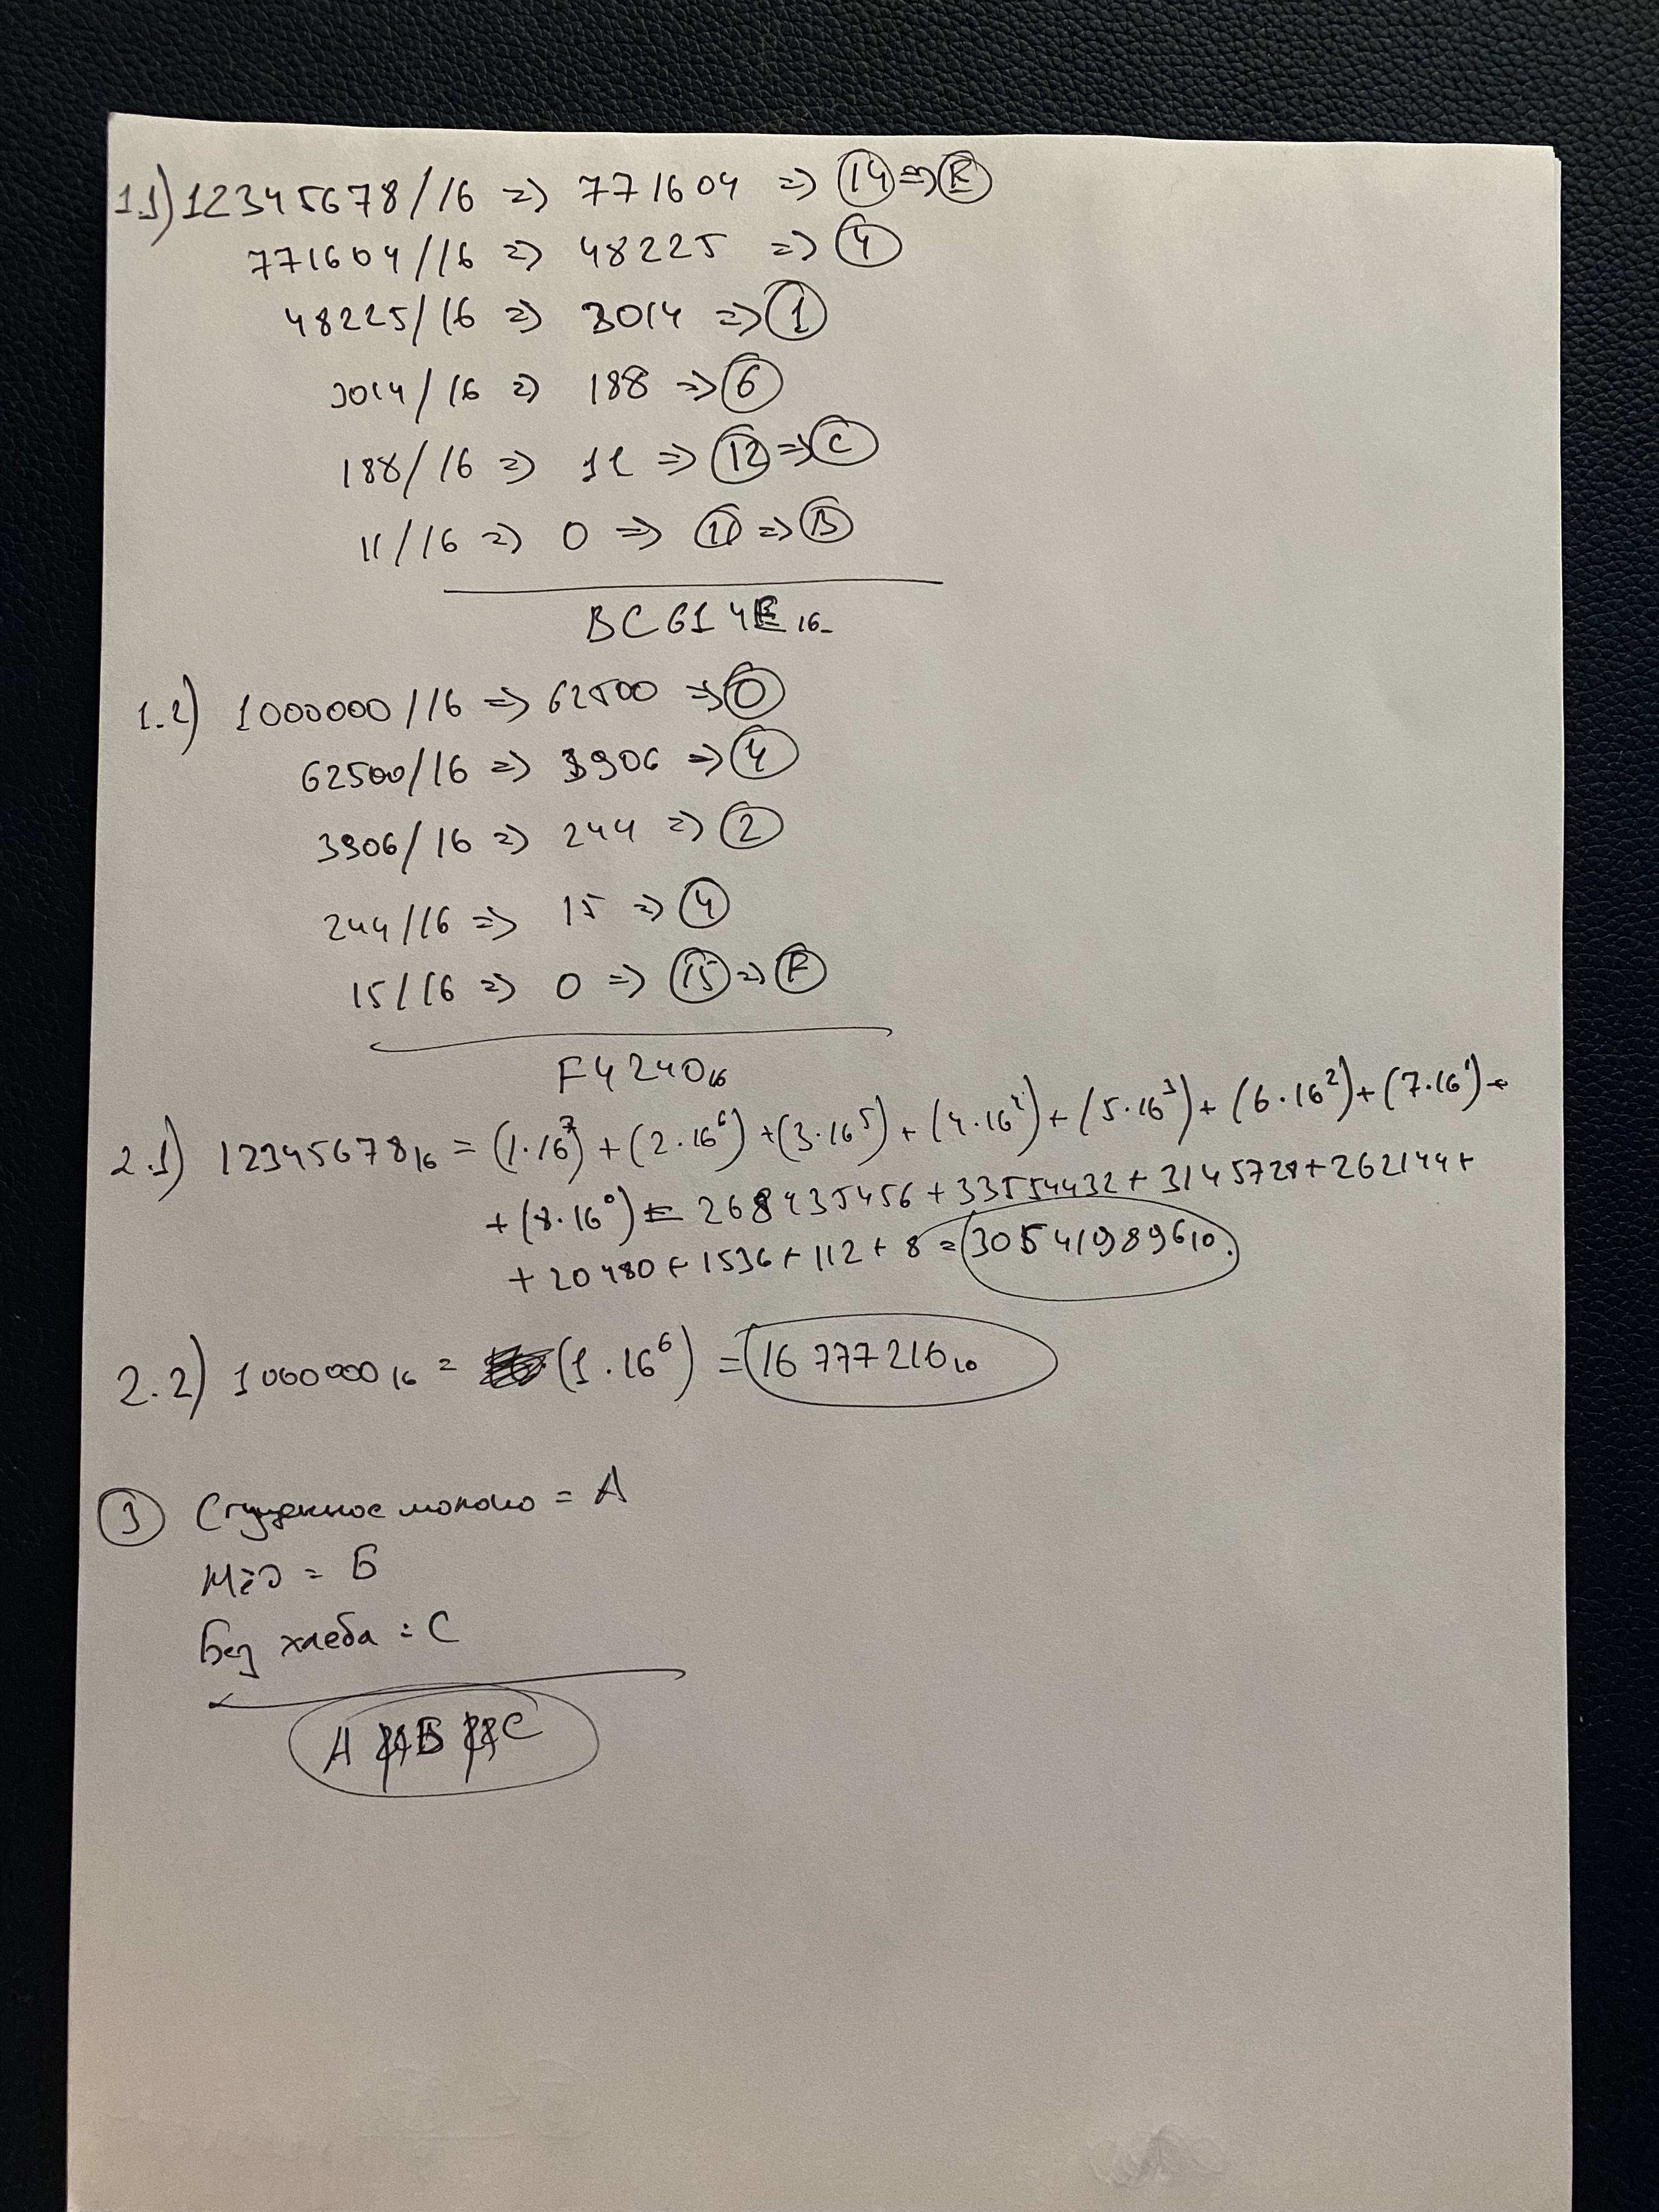 1.1) 12345678/16 => 771604 => 14 => E
771604/16 => 48225 => 4
48225/16 => 3014 => 1
3014/16 => 188 => 6
188/16 => 11 => 12 => C
11/16 => 0 => 11 => B
BC614E16
1.2) 1000000/16 => 62500 => 0
62500/16 => 3906 => 4
3906/16 => 244 => 2
244/16 => 15 => 4
15/16 => 0 => 15 => F
F424016
2.1) 1234567816 = (1·16^7) + (2·16^6) + (3·16^5) + (4·16^4) + (5·16^3) + (6·16^2) + (7·16^1) +
+ (8·16^0) = 268435456 + 33554432 + 3145728 + 262144 +
+ 20480 + 1536 + 112 + 8 = 30541989610.
2.2) 100000016 = (1·16^6) = 1677721610
3 Сгущенное молоко = А
Мёд = Б
Без хлеба = С
А Б С